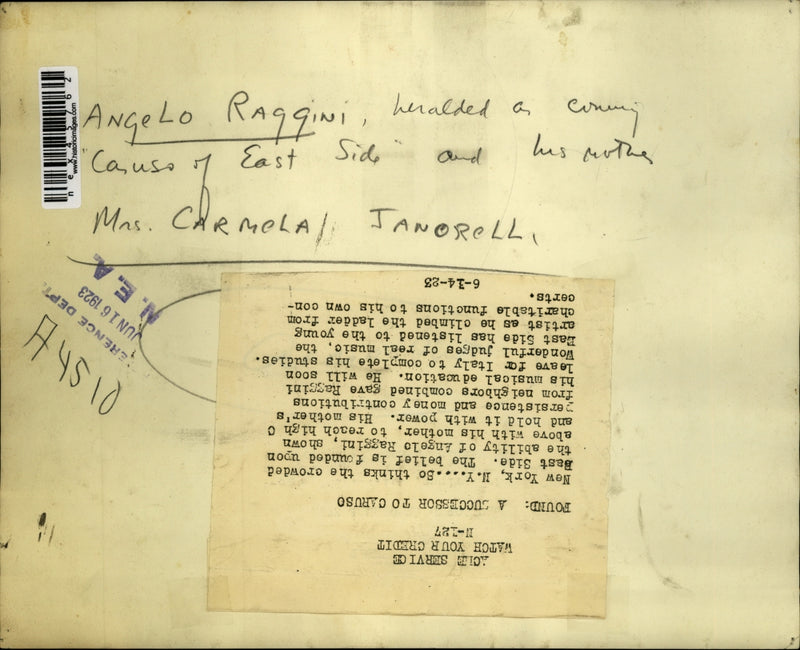 ANGELO RAGGINI, heralded as coming
"Caruso of East Side" and his mother
Mrs. CARMELA JANORELLI
www.historicimages.com
N. E. A.
JUN 16 1923
ERENCE DEPT.
ACME SERVICE
WATCH YOUR CREDIT
N-127
FOUND: A SUCCESSOR TO CARUSO
New York, N.Y....So thinks the crowded
East Side. The belief is founded upon
the ability of Angelo Raggini, shown
above with his mother, to reach high C
and hold it with power. His mother's
persistence and money contributions
from neighbors combined gave Raggini
his musical education. He will soon
leave for Italy to complete his studies.
Wonderful judges of real music, the
East Side has listened to the young
artist as he climbed the ladder from
charitable functions to his own con-
certs.
6-14-23